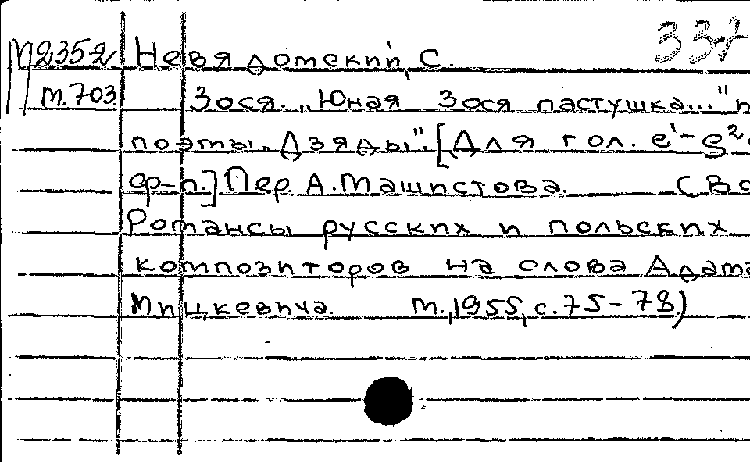 337
М2352 Невядомский, С.
м.703 Зося. „Юная Зося пастушка..."
поэмы „Дзяды". [Для гол. e¹-g²
фр-п.] Пер А. Машистова. (В
Романсы русских и польских
композиторов на слова Адама
Мицкевича. М., 1955, с. 75-78)